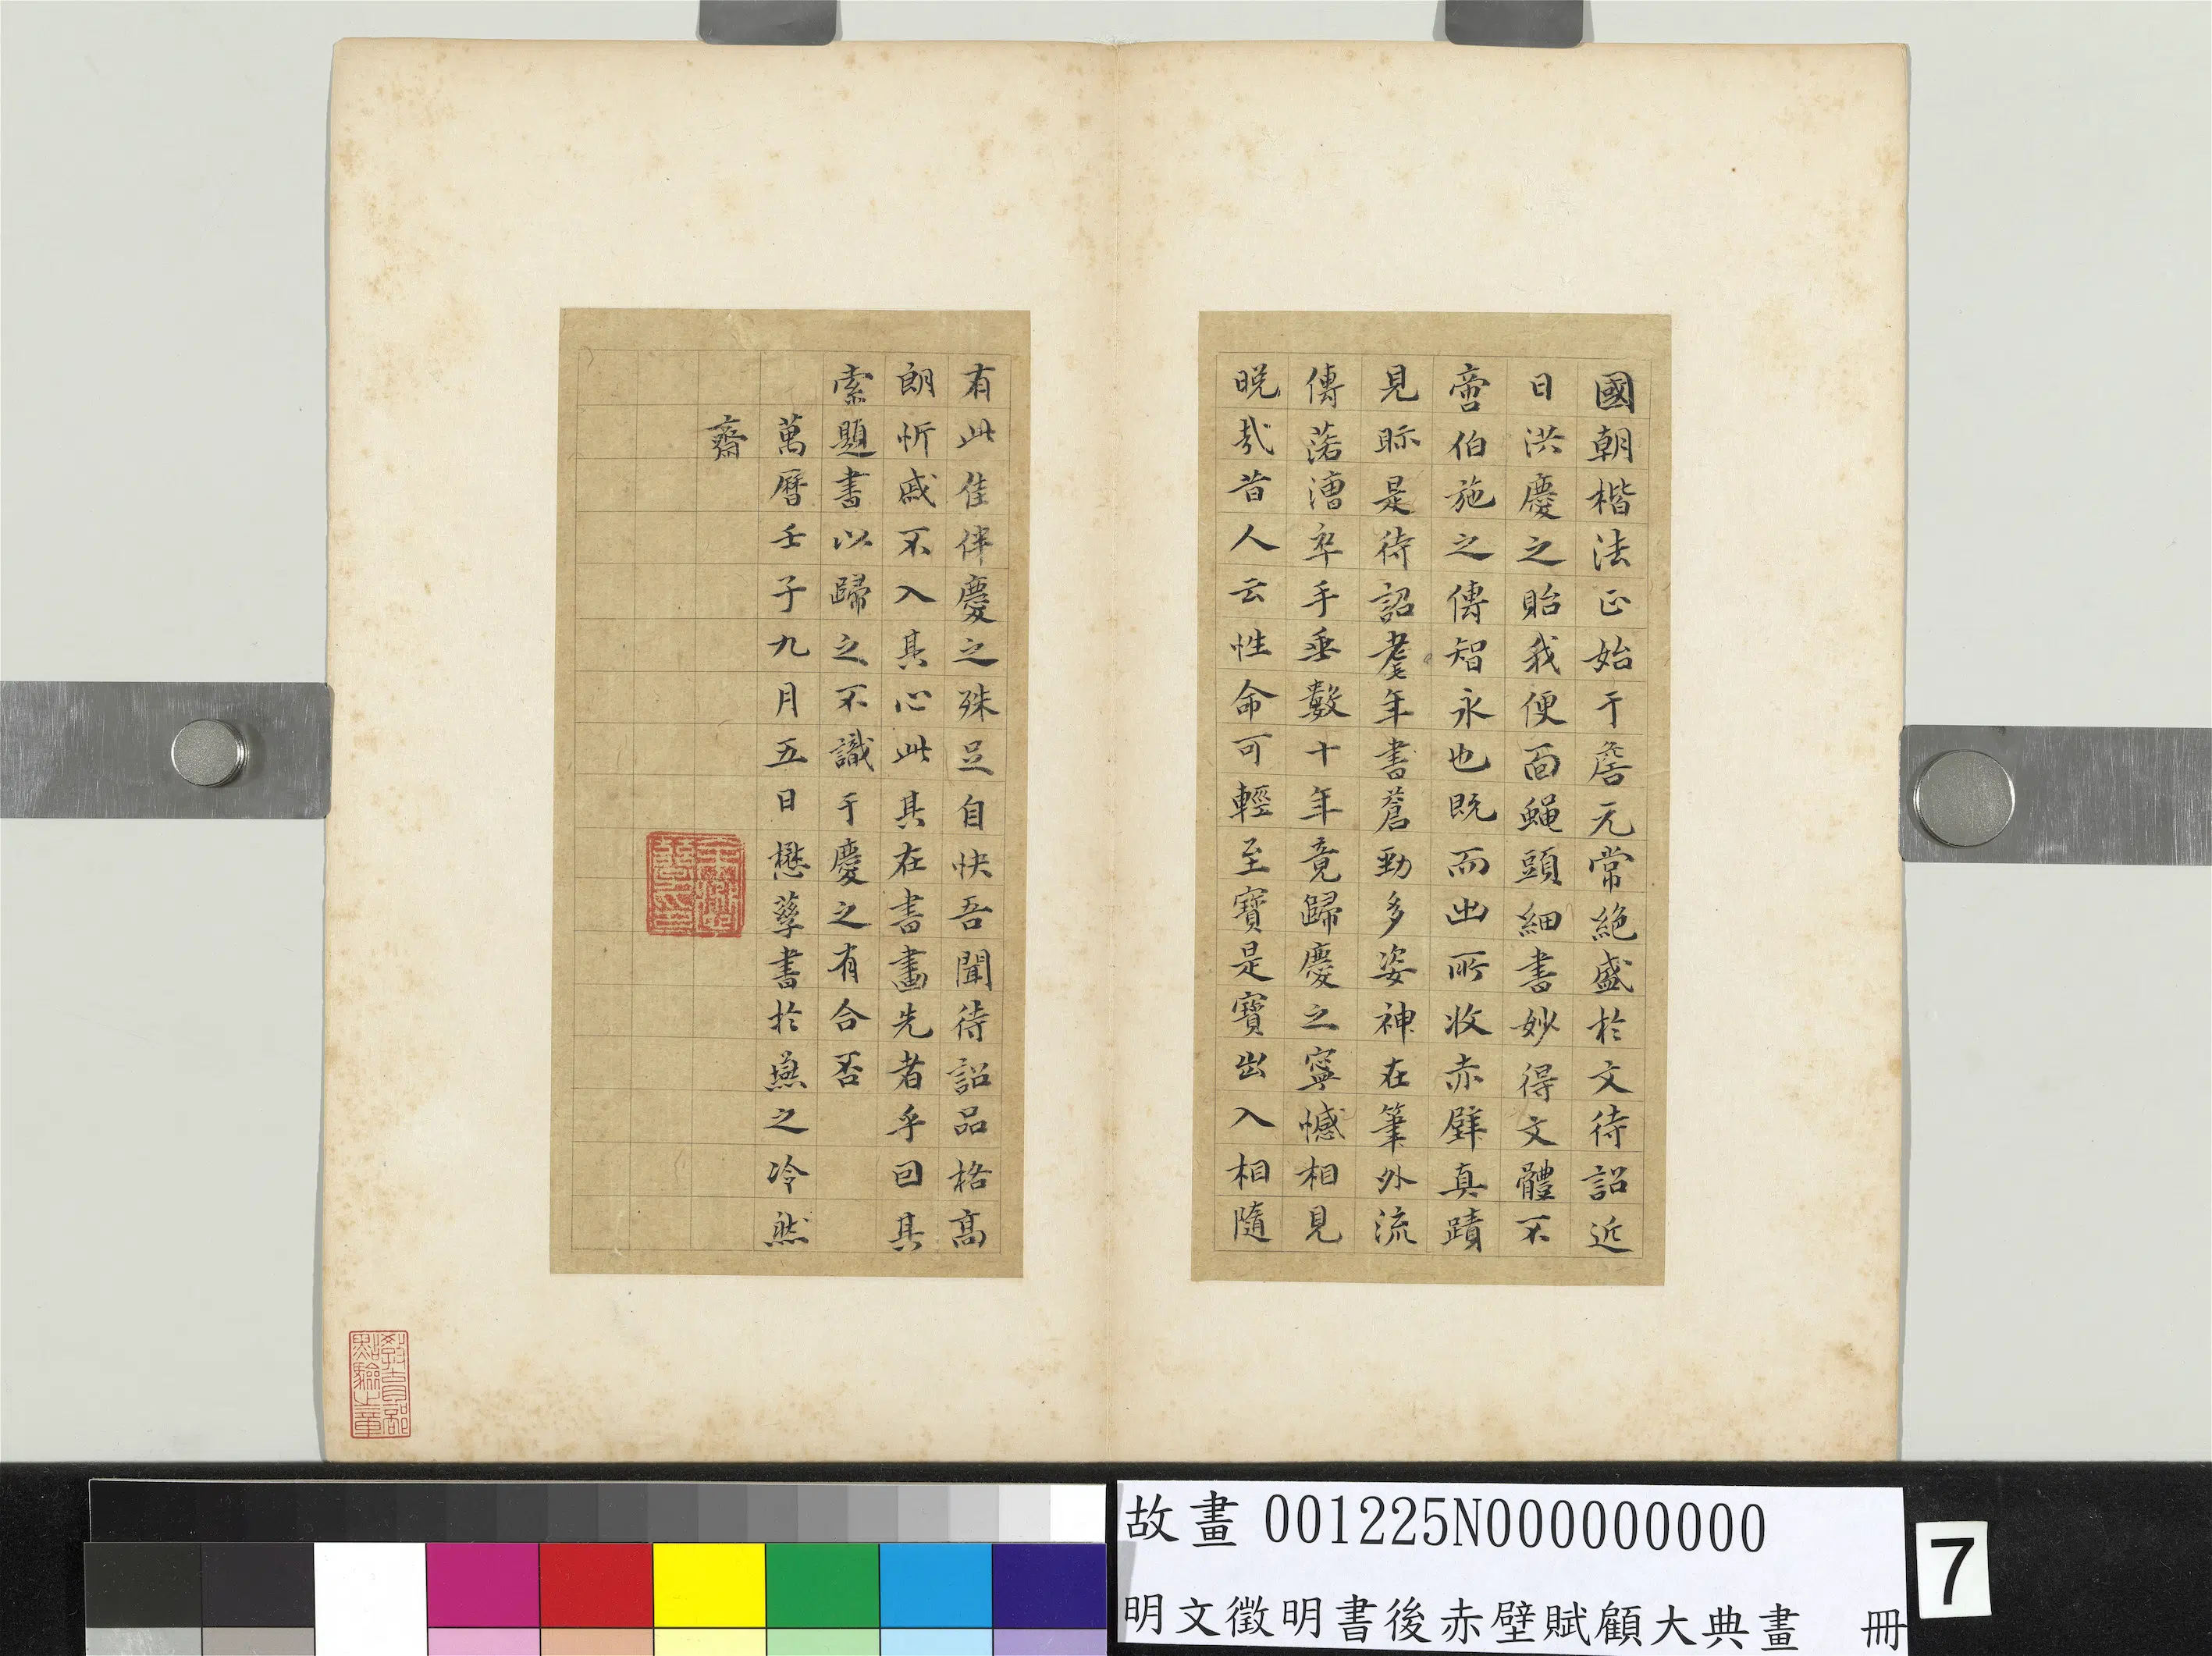 國朝楷法正始于詹元常絕盛於文待詔近
日洪慶之貽我便面蠅頭細書妙得文體不
啻伯施之傳智永也既而出所收赤壁真蹟
見眎是待詔耄年書蒼勁多姿神在筆外流
傳落漕卒手垂數十年竟歸慶之寧憾相見
晚哉昔人云性命可輕至寶是寶出入相隨
有此佳伴慶之殊足自快吾聞待詔品格高
朗忻戚不入其心此其在書畫先者乎回其
索題書以歸之不識于慶之有合否
萬曆壬子九月五日懋孳書於燕之冷然
齋
教育部
點驗之章
故畫 001225N000000000
明文徵明書後赤壁賦顧大典畫 冊
7